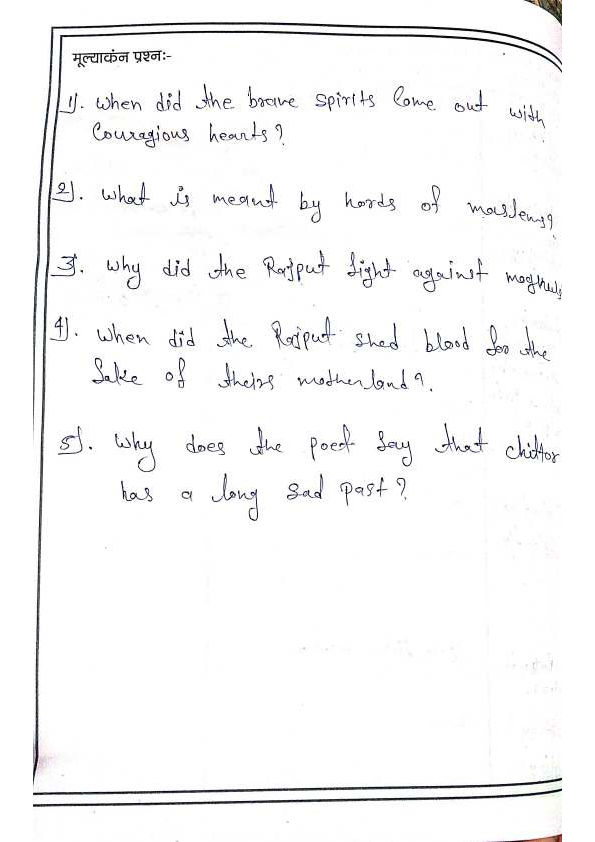 मूल्याकंन प्रश्नः-
1). When did the brave spirits Come out with
Couragious hearts?
2). What is meant by hords of moslems?
3. Why did the Rajput fight against moghuls
4). When did the Rajput shed blood for the
Sake of theirs motherland?.
5). Why does the poet Say that chittor
has a long sad past?